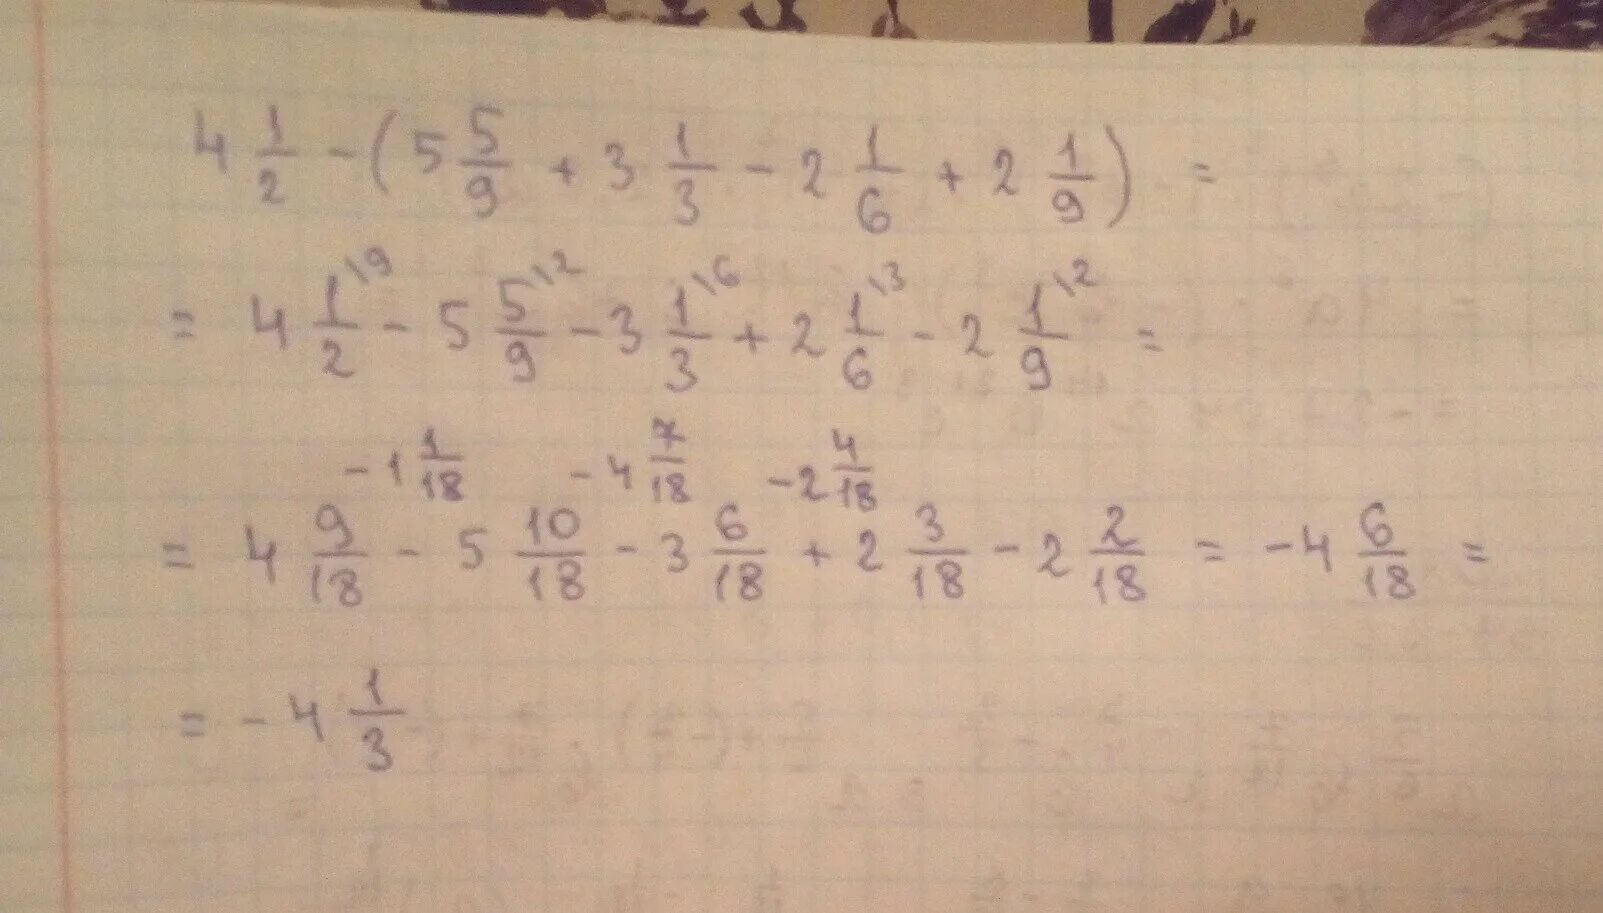 4 1/2 - (5 5/9 + 3 1/3 - 2 1/6 + 2 1/9) =
= 4 1/2 \9 - 5 5/9 \2 - 3 1/3 \6 + 2 1/6 \3 - 2 1/9 \2 =
-1 1/18 -4 7/18 -2 4/18
= 4 9/18 - 5 10/18 - 3 6/18 + 2 3/18 - 2 2/18 = -4 6/18 =
= -4 1/3